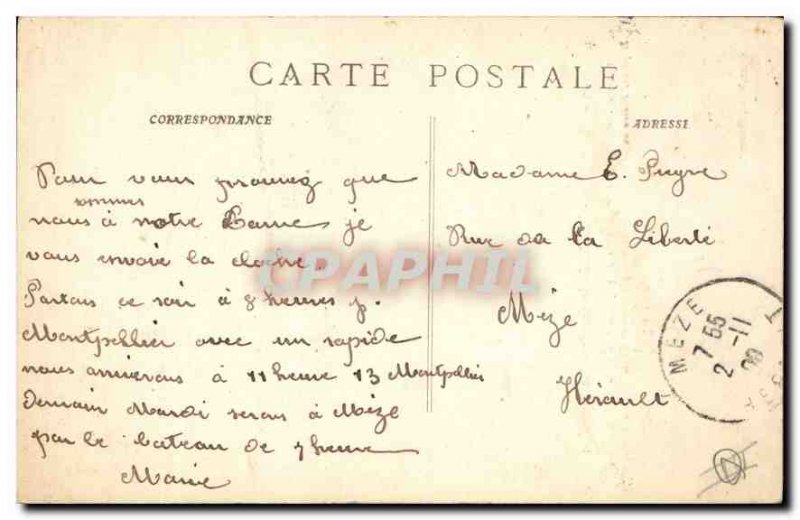 CARTE POSTALE
CORRESPONDANCE
Pour vous prouvez que
sommes
nous à notre Dame je
vous envoie la cloche.
Partons ce soir à 8 heures p.
Montpellier avec un rapide
nous arriverons à 11 heure 13 Montpellier
Demain Mardi serons à Mèze
par le bateau de 7 heure
Marie
ADRESSE
Madame E. Peyre
Rue de la Liberté
Mèze
Hérault
MEZE
7 55
2 -11
CPAPHIL